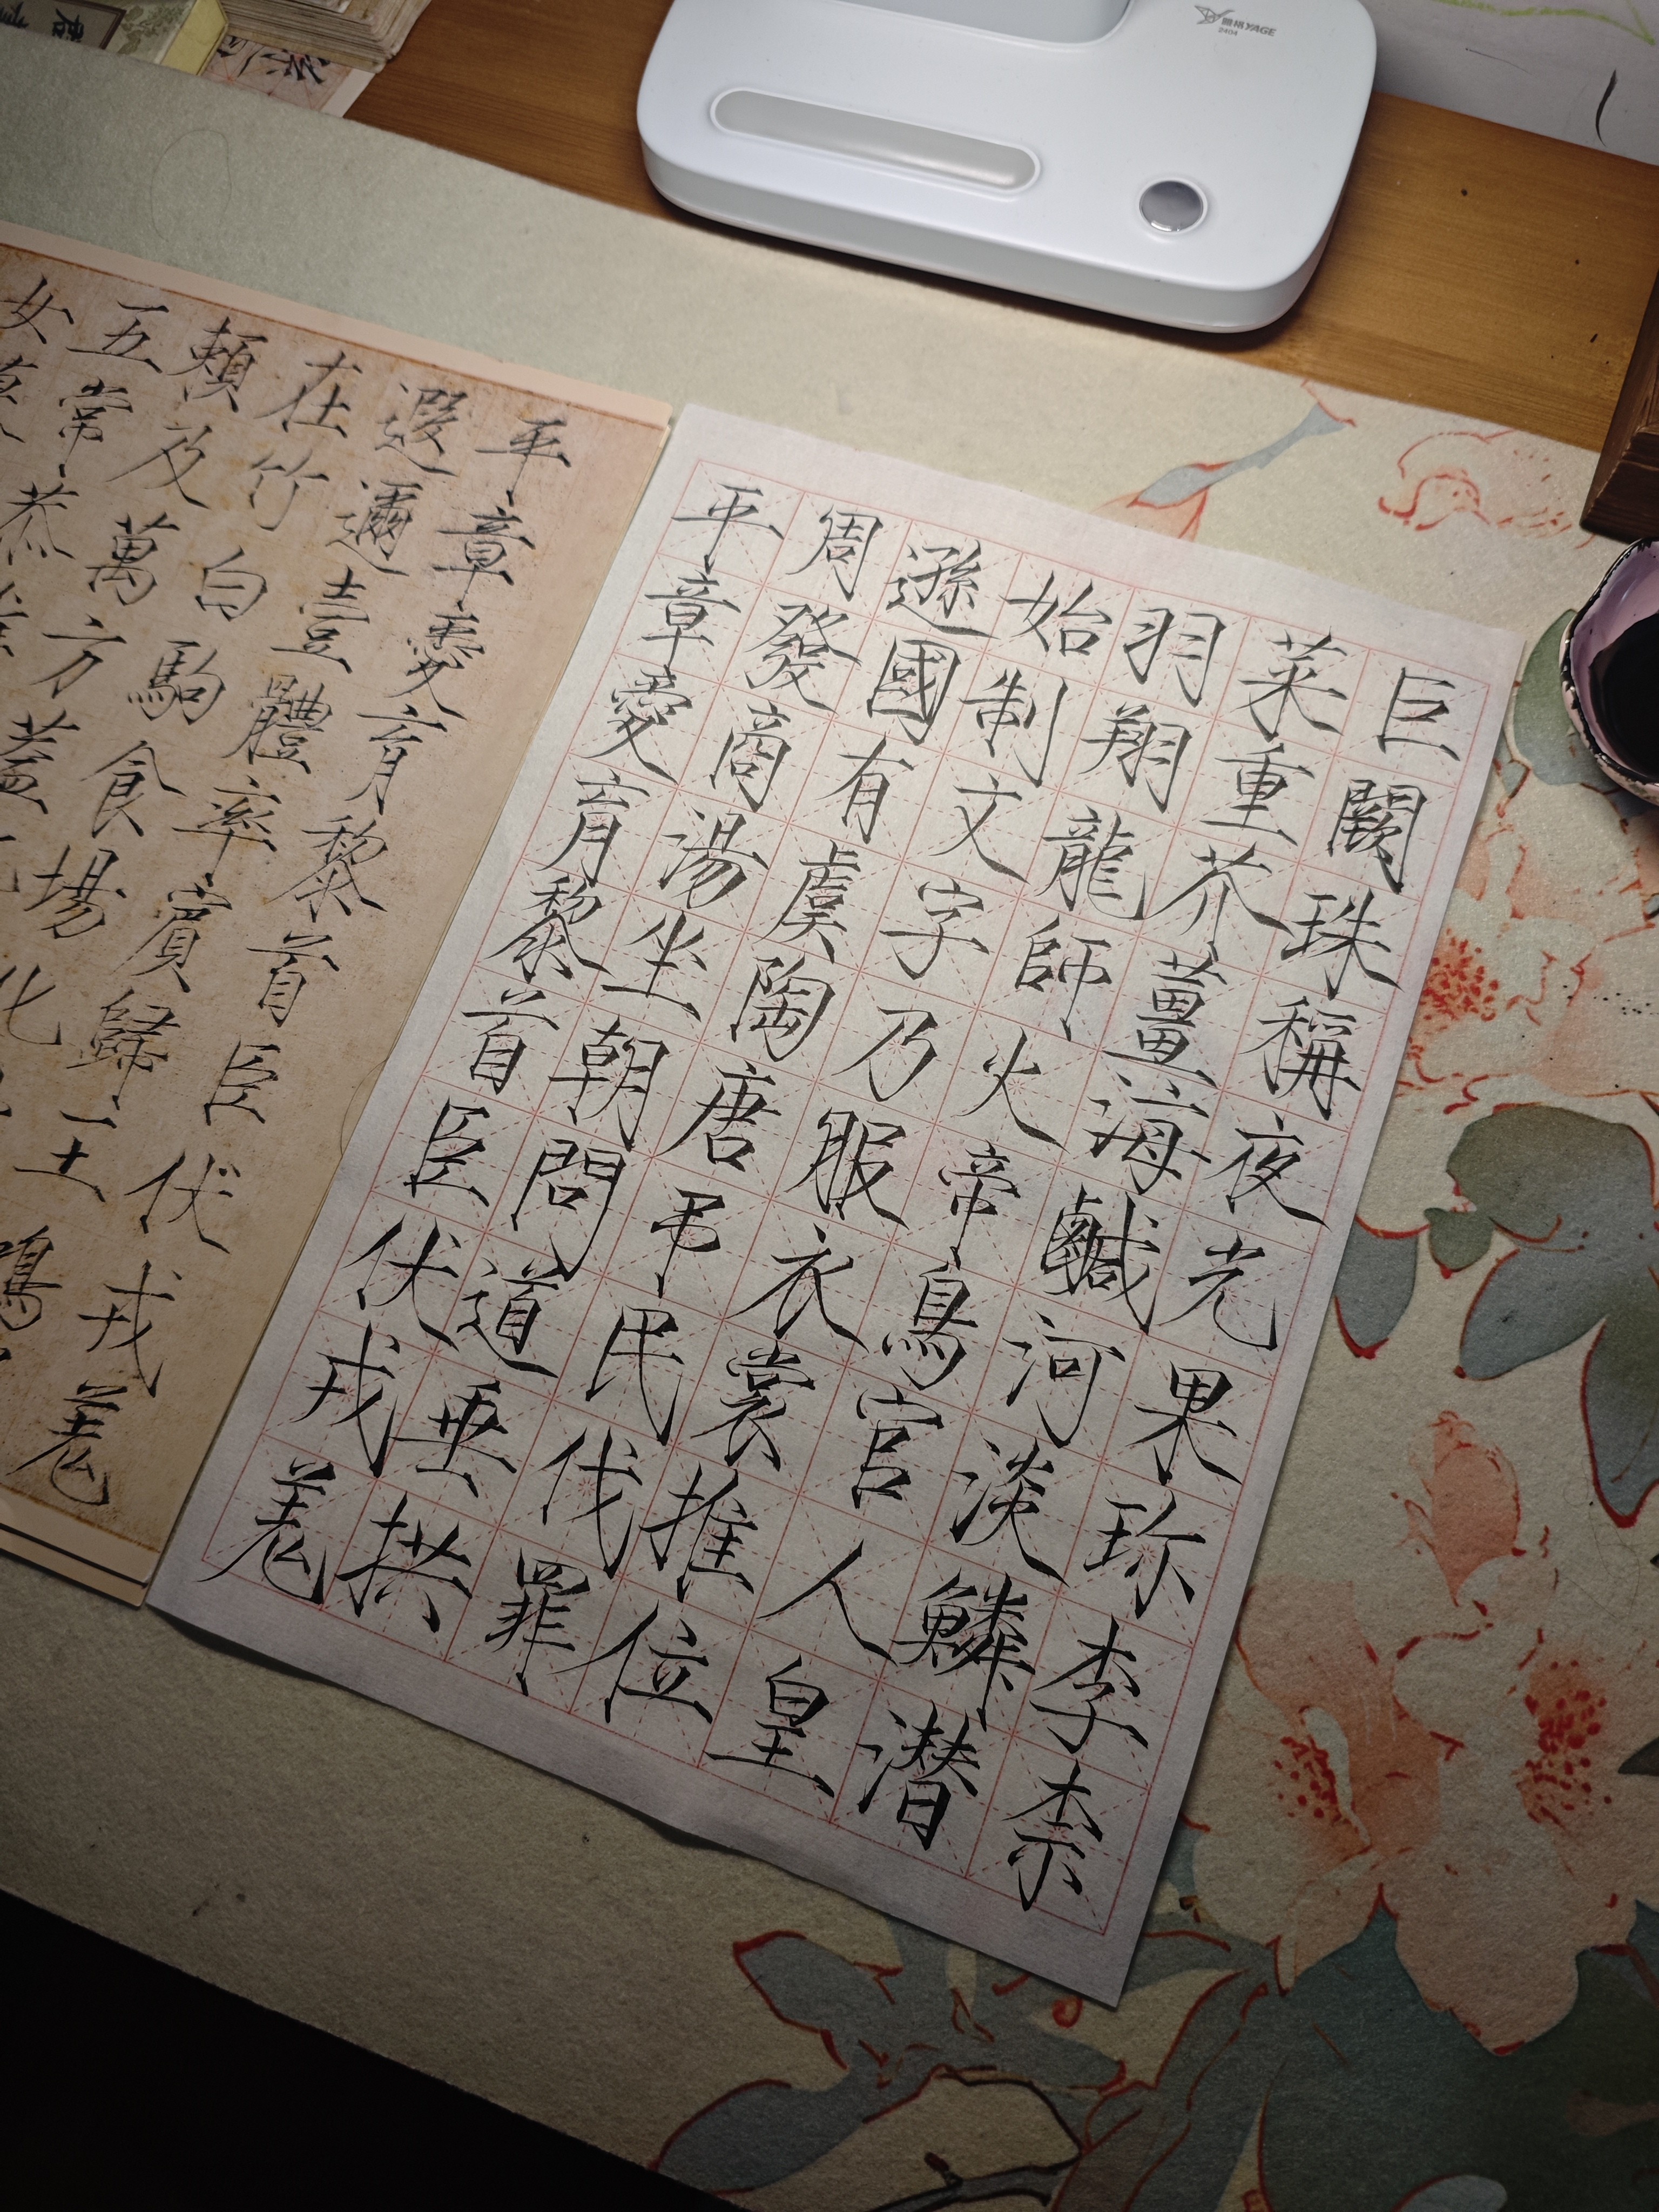 巨闕珠稱夜光果珍李柰
菜重芥薑海鹹河淡鱗潜
羽翔龍師火帝鳥官人皇
始制文字乃服衣裳推位
遜國有虞陶唐吊民伐罪
周發商湯坐朝問道垂拱
平章愛育黎首臣伏戎羗
平章愛育黎首臣伏戎羗
遐邇壹體率賓歸王鳴
在竹白駒食場化
賴及萬方蓋
五常恭
女
雅格YAGE
2404